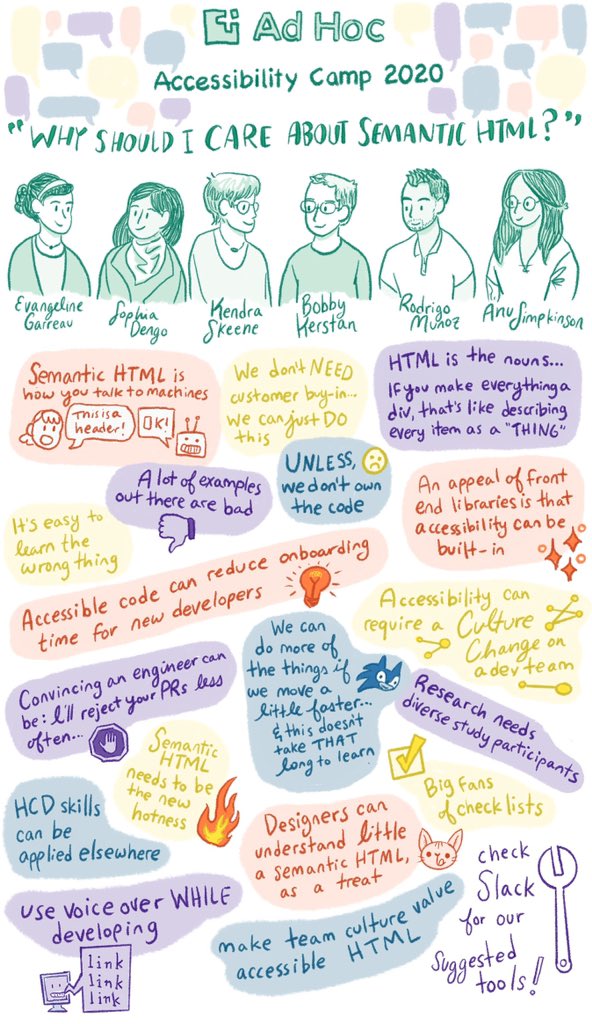 Ad Hoc
Accessibility Camp 2020
"WHY SHOULD I CARE ABOUT SEMANTIC HTML?"
Evangeline
Garreau
Sophia
Dengo
Kendra
Skeene
Bobby
Kerstan
Rodrigo
Muñoz
Anu
Simpkinson
Semantic HTML is
how you talk to machines
This is a
header!
OK!
We don't NEED
customer buy-in...
we can just DO
this
HTML is the nouns...
If you make everything a
div, that's like describing
every item as a "THING"
A lot of examples
out there are bad
UNLESS,
we don't own
the code
An appeal of front
end libraries is that
accessibility can be
built-in
It's easy to
learn the
wrong thing
Accessible code can reduce onboarding
time for new developers
Accessibility can
require a Culture
Change on
a dev team
We can
do more of
the things if
we move a
little faster...
& this doesn't
take THAT
long to learn
Convincing an engineer can
be: I'll reject your PRs less
often...
Research needs
diverse study participants
Semantic
HTML
needs to be
the new
hotness
Big fans
of checklists
HCD skills
can be
applied elsewhere
Designers can
understand little
a semantic HTML,
as a treat
check
Slack
for our
suggested
tools!
use voice over WHILE
developing
link
link
link
make team culture value
accessible HTML